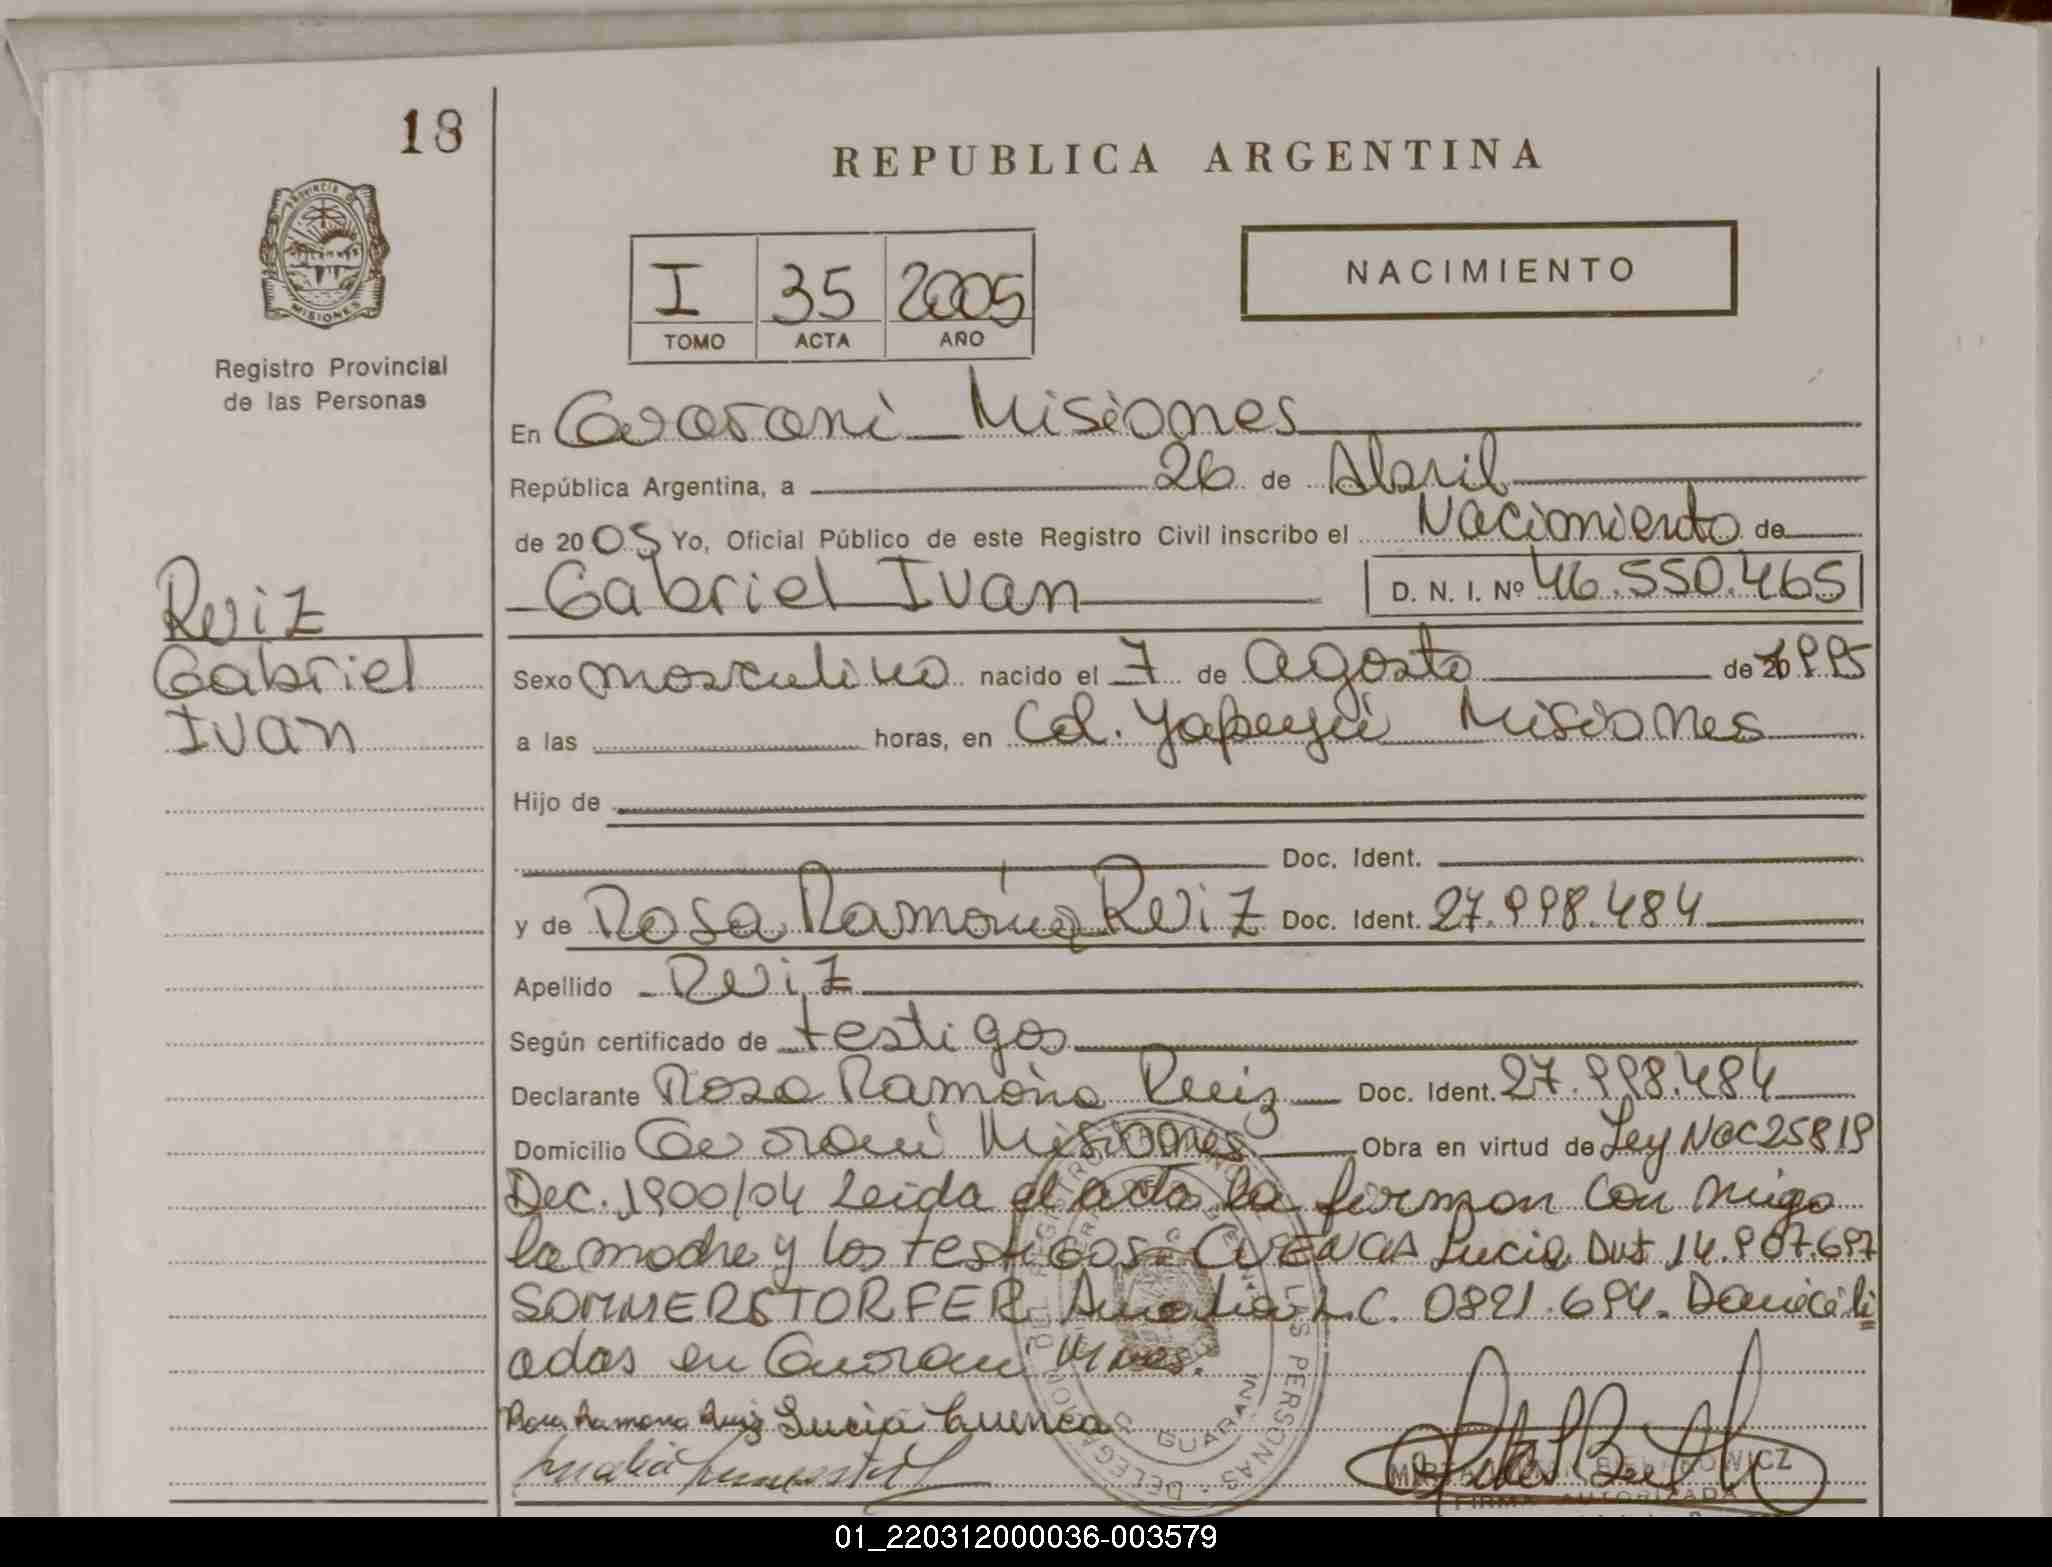 18
REPUBLICA ARGENTINA
PROVINCIA DE MISIONES
Registro Provincial
de las Personas
I 35 2005
TOMO ACTA AÑO
NACIMIENTO
En Guarani Misiones
República Argentina, a 26 de Abril
de 2005 Yo, Oficial Público de este Registro Civil inscribo el Nacimiento de
Gabriel Ivan D. N. I. Nº 46.550.465
Ruiz
Gabriel
Ivan
Sexo masculino nacido el 7 de agosto de 1995
a las horas, en Col. Yapeyú Misiones
Hijo de
Doc. Ident.
y de Rosa Ramona Ruiz Doc. Ident. 27.998.484
Apellido Ruiz
Según certificado de testigos
Declarante Rosa Ramona Ruiz Doc. Ident. 27.998.484
Domicilio Guarani Misiones Obra en virtud de Ley Nac 25819
Dec. 1900/04 Leida el acta la firman con migo
la madre y los testigos. CUENCA Lucia DNI 14.907.697
SOMMERSTORFER Amalia L.C. 0821.694. Domicili
adas en Guarani Mnes.
Rosa Ramona Ruiz Lucia Cuenca
DELEGACION GUARANI
LAS PERSONAS
FIRMA AUTORIZADA
01_220312000036-003579